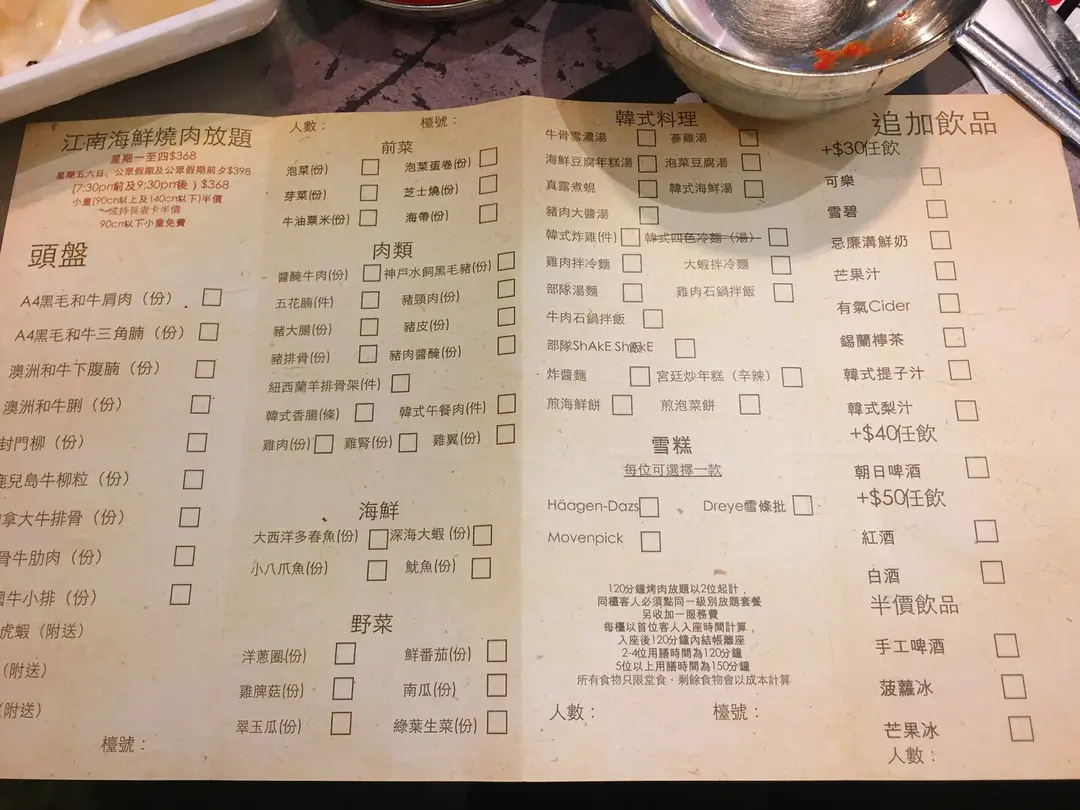 江南海鮮燒肉放題
星期一至四$368
星期五六日、公眾假期及公眾假期前夕$398
(7:30pm前及9:30pm後）$368
小童(90cm以上及140cm以下)半價
或持長者卡半價
90cm以下小童免費
頭盤
A4黑毛和牛肩肉（份）
A4黑毛和牛三角腩（份）
澳洲和牛下腹腩（份）
澳洲和牛脷（份）
封門柳（份）
兒島牛柳粒（份）
拿大牛排骨（份）
骨牛肋肉（份）
國牛小排（份）
虎蝦（附送）
（附送）
（附送）
檯號：
人數： 檯號：
前菜
泡菜(份) 泡菜蛋卷(份)
芽菜(份) 芝士燒(份)
牛油粟米(份) 海帶(份)
肉類
醬醃牛肉(份) 神戶水飼黑毛豬(份)
五花腩(件) 豬頸肉(份)
豬大腸(份) 豬皮(份)
豬排骨(份) 豬肉醬醃(份)
紐西蘭羊排骨架(件)
韓式香腸(條) 韓式午餐肉(件)
雞肉(份) 雞腎(份) 雞翼(份)
海鮮
大西洋多春魚(份) 深海大蝦 (份)
小八爪魚(份) 魷魚(份)
野菜
洋蔥圈(份) 鮮番茄(份)
雞脾菇(份) 南瓜(份)
翠玉瓜(份) 綠葉生菜(份)
韓式料理
牛骨雪濃湯 蔘雞湯
海鮮豆腐年糕湯 泡菜豆腐湯
真露煮蜆 韓式海鮮湯
豬肉大醬湯
韓式炸雞(件) 韓式四色冷麵（湯）
雞肉拌冷麵 大蝦拌冷麵
部隊湯麵 雞肉石鍋拌飯
牛肉石鍋拌飯
部隊ShAkE Sh飯kE
炸醬麵 宮廷炒年糕（辛辣）
煎海鮮餅 煎泡菜餅
雪糕
每位可選擇一款
Häagen-Dazs Dreye雪條批
Movenpick
120分鐘烤肉放題以2位起計，
同檯客人必須點同一級別放題套餐
另收加一服務費
每檯以首位客人入座時間計算，
入座後120分鐘內結帳離座
2-4位用膳時間為120分鐘
5位以上用膳時間為150分鐘
所有食物只限堂食，剩餘食物會以成本計算
人數： 檯號：
追加飲品
+$30任飲
可樂
雪碧
忌廉溝鮮奶
芒果汁
有氣Cider
錫蘭檸茶
韓式提子汁
韓式梨汁
+$40任飲
朝日啤酒
+$50任飲
紅酒
白酒
半價飲品
手工啤酒
菠蘿冰
芒果冰
人數：